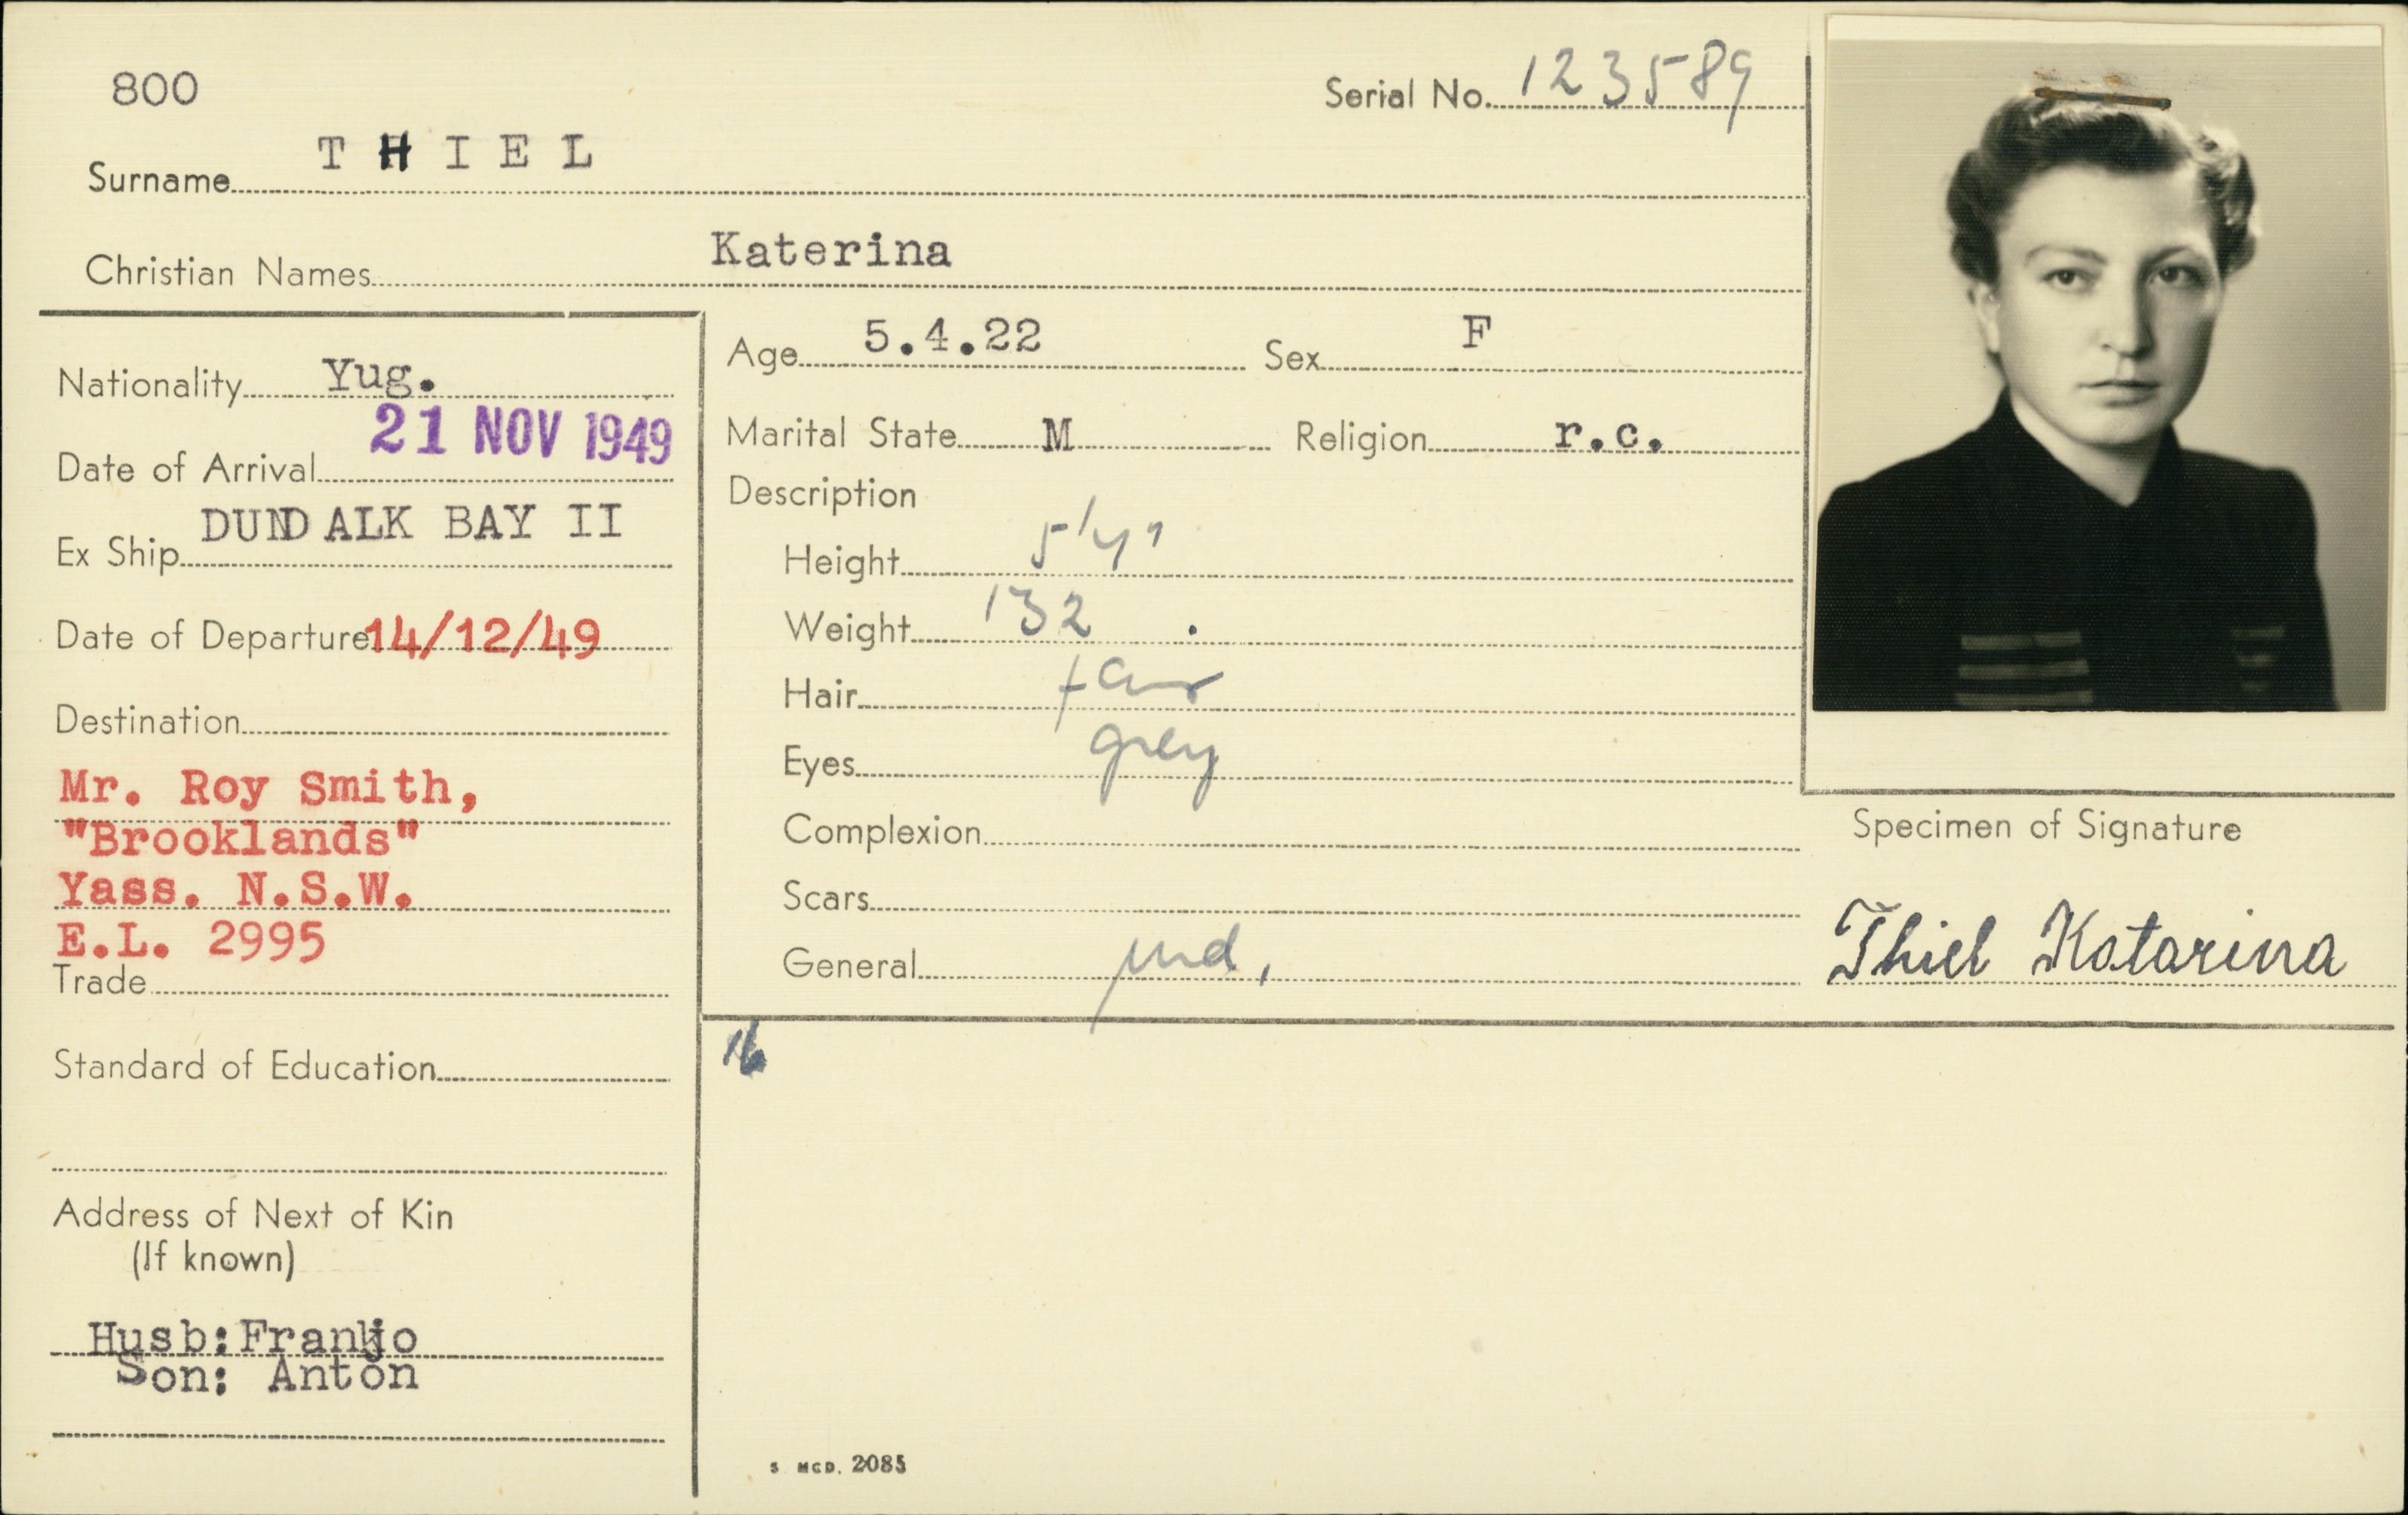 800
Serial No. 123589
Surname THIEL
Christian Names Katerina
Nationality Yug.
Date of Arrival 21 NOV 1949
Ex Ship DUNDALK BAY II
Date of Departure 14/12/49
Destination
Mr. Roy Smith,
"Brooklands"
Yass. N.S.W.
E.L. 2995
Trade
Standard of Education
Address of Next of Kin
(If known)
Husb: Franjo
Son: Anton
Age 5.4.22 Sex F
Marital State M Religion r.c.
Description
Height 5'4"
Weight 132
Hair fair
Eyes grey
Complexion
Scars
General
Specimen of Signature
Thiel Katarina
S MCD. 2085